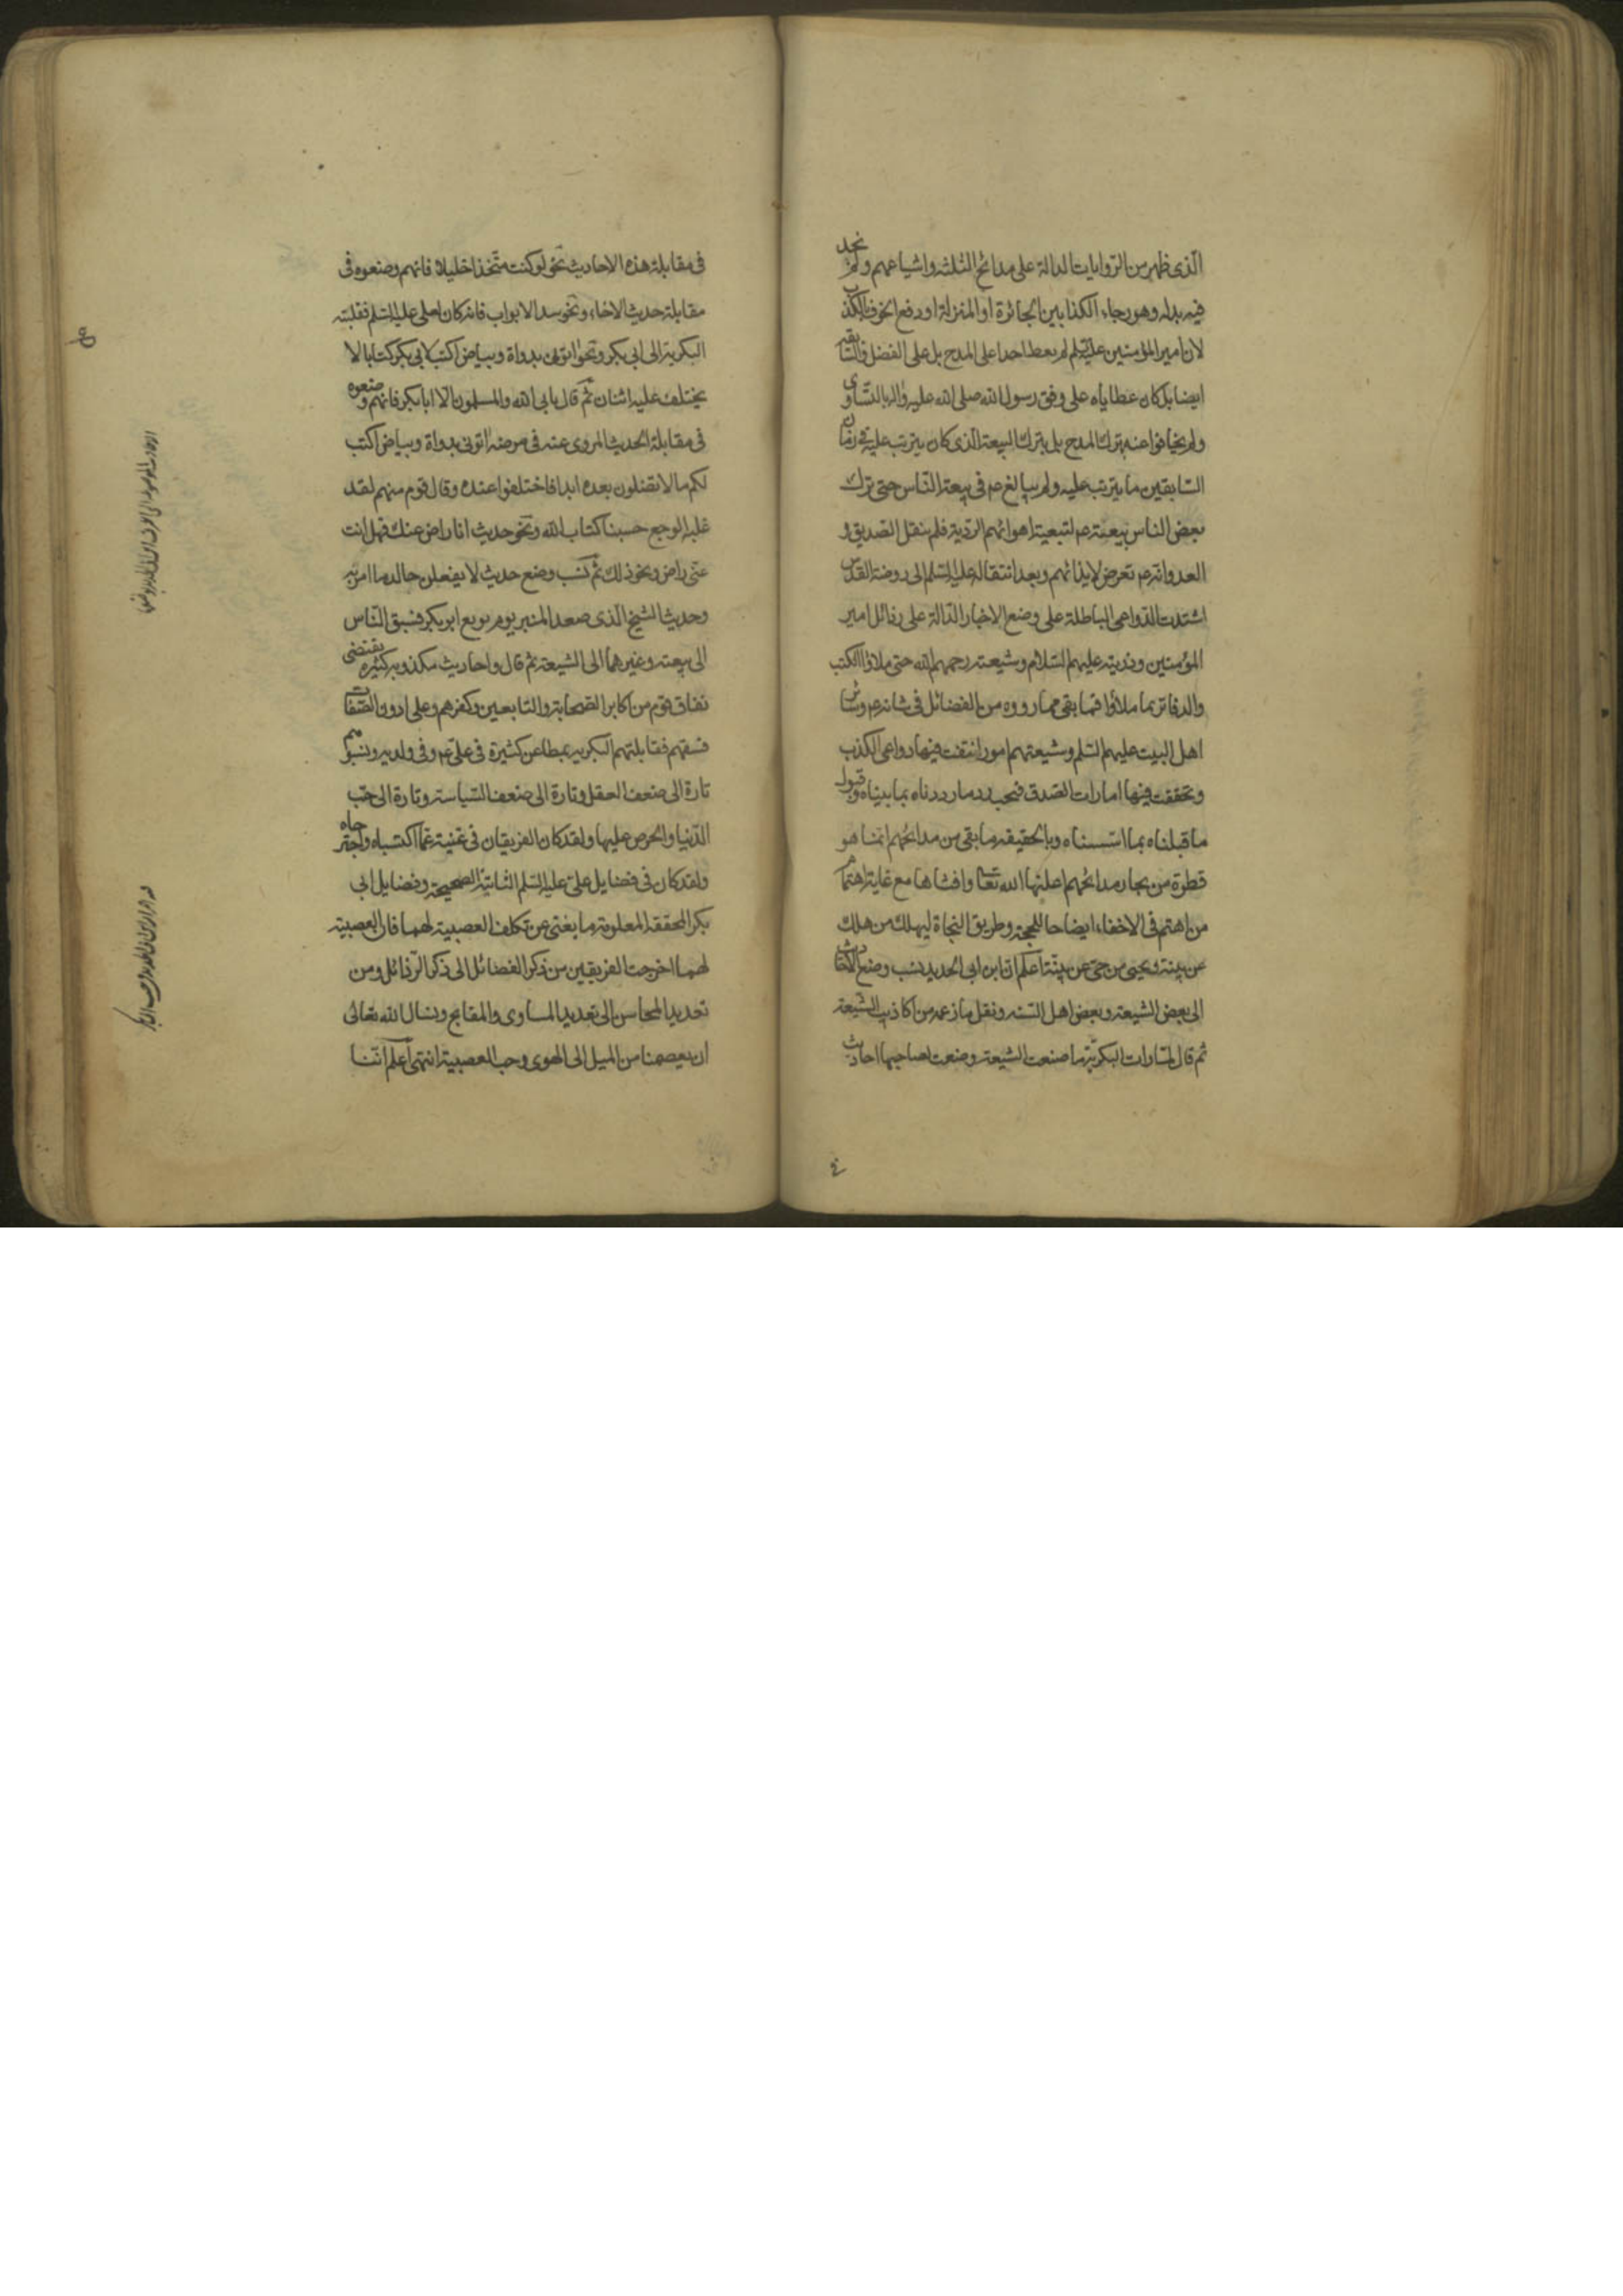 الّذى ظهر من الرّوايات الدالة على مدائح الثلثة واشياعهم ولم نجد
فيه بدله وهو رجاء الكذابين الجائزة او المنزلة او رفع الخوف بالكذب
لان امير المؤمنين عليه السلم لم يعط احدا على المدح بل على الفضل والسابقة
ايضا بل كان عطاياه على وفق رسول الله صلى الله عليه واله بالتساوى
ولم يخافوا عنه بترك المدح بل بترك البيعة الذى كان يترتب عليه فى زمان
السّابقين ما يترتب عليه ولم يبالغ عم فى بيعة النّاس حتى ترك
بعض الناس بيعته عم لتبعية اهوائهم الرّدية فلم ينقل الصديق و
العدو انه عم تعرض لايذائهم وبعد انتقاله عليه السّلم الى روضة القدس
اشتدت الدّواعى الباطلة على وضع الاخبار الدّالة على رذائل امير
المؤمنين وذريته عليهم السّلام وشيعته رحمهم الله حتى ملاؤا الكتب
والدفاتر بما ملاؤا فما بقى مما رووه من الفضائل فى شانه عم وشان
اهل البيت عليهم السّلم وشيعتهم امور انتفت فيها دواعى الكذب
وتحققت فيها امارات الصّدق فيجب رد ما رددناه بما بيناه وقبول
ما قبلناه بما اسّسناه وبالحقيقه ما بقى من مدائحهم انما هو
قطرة من بحار مدائحهم اعلنها الله تعا وافشاها مع غاية اهتمام
من اهتم فى الاخفاء ايضاحا للحجة وطريق النجاة ليهلك من هلك
عن بينة ويحيى من حىّ عن بيّنة اعلم ان ابن ابى الحديد نسب وضع الاحاديث
الى بعض الشيعة وبعض اهل السّنه ونقل ما زعمه من اكاذيب الشيعة
ثم قال لمّا رات البكريّة ما صنعت الشيعة وضعت لصاحبها احاديث
فى مقابلة هذه الاحاديث نحو لو كنت متّخذا خليلا فانهم وضعوه فى
مقابلة حديث الاخاء ونحو سد الابواب فانه كان لعلى عليه السّلم فقلبته
البكرية الى ابى بكر ونحو ايتونى بدواة وبياض اكتب لابى بكر كتابا لا
يختلف عليه اثنان ثم قال يابى الله والمسلمون الّا ابا بكر فانهم وضعوه
فى مقابلة الحديث المروى عنه فى مرضه ائتونى بدواة وبياض اكتب
لكم ما لا تضلون بعده ابدا فاختلفوا عنده وقال قوم منهم لقد
غلبه الوجع حسبنا كتاب الله ونحو حديث انا راض عنك فهل انت
عنّى راض ونحو ذلك ثم نسب وضع حديث لا يفعلن خالد ما امر به
وحديث الشيخ الّذى صعد المنبر يوم بويع ابو بكر فسبق النّاس
الى بيعته وغيرهما الى الشيعة ثم قال واحاديث مكذوبه كثيره يقتضى
نفاق قوم من اكابر الصّحابة والتابعين وكفرهم وعلى ادون الصّفات
فسقهم فقابلتهم البكريه بمطاعن كثيرة فى علىّ عم وفى ولديه ونسبوهم
تارة الى ضعف العقل وتارة الى ضعف السّياسة وتارة الى حبّ
الدّنيا والحرص عليها ولقد كان الفريقان فى غنية عمّا اكتسباه واجترحاه
ولقد كان فى فضايل علىّ عليه السّلم الثّابتة الصحيحة وفضايل ابى
بكر المحققة المعلومة ما يغنى عن تكلف العصبية لهما فان العصبية
لهما اخرجت الفريقين من ذكر الفضائل الى ذكر الرّذائل ومن
تعديد المحاسن الى تعديد المساوى والمقابح ونسال الله تعالى
ان يعصمنا من الميل الى الهوى وحب العصبية انتهى اعلم انّنا